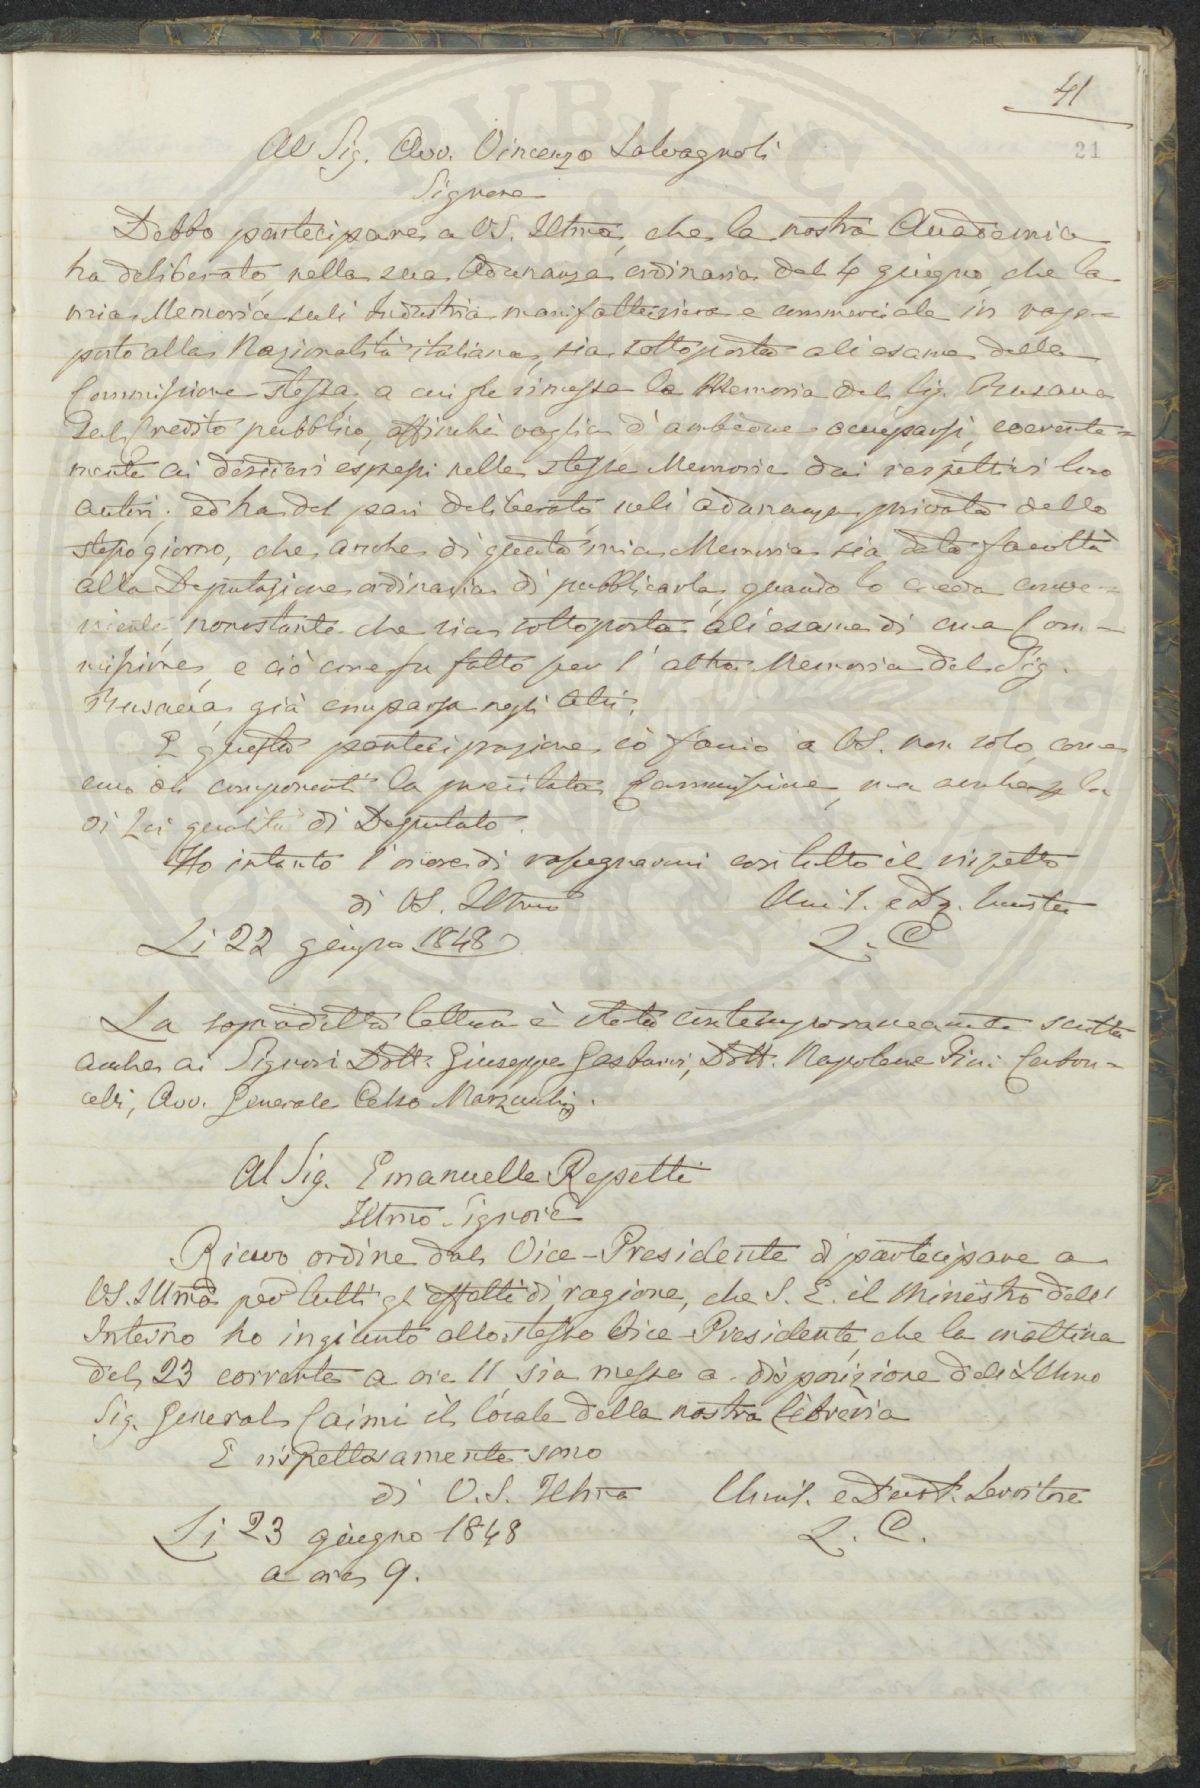 41
21
Al Sig. Avv. Vincenzo Salvagnoli
Signore
Debbo partecipare a VS. Illma, che la nostra Accademia
ha deliberato, nella sua Adunanza ordinaria del 4 giugno, che la
mia Memoria sull'Industria manifatturiera e commerciale in rap-
porto alla Nazionalità italiana, sia sottoposta all'esame della
Commissione stessa, a cui fu rimessa la Memoria del Sig. Busacca
Sul Credito pubblico, affinchè voglia d'ambedue occuparsi, coerente=
mente ai desideri espressi nelle stesse Memorie dai respettivi loro
autori; ed ha del pari deliberato, nell'adunanza privata dello
stesso giorno, che anche di questa mia Memoria sia data facoltà
alla Deputazione ordinaria di pubblicarla, quando lo creda conve-
niente, nonostante che sia sottoposta all'esame di una Com-
missione, e ciò come fu fatto per l'altra Memoria del Sig.
Busacca, già comparsa negli Atti.
E questa partecipazione io faccio a VS. non solo, come
uno dei componenti la precitata Commissione, ma anche p la
di Lei qualità di Deputato.
Ho intanto l'onore di rassegnarmi con tutto il rispetto
di VS. Illma
Li 22 giugno 1848
L. C
La sopradetta lettera è stata contemporaneamente scritta
anche ai Signori Dott. Giuseppe Gasbarri, Dott. Napoleone Pini Carbon-
celli, Avv. Generale Celso Marzucchi.
Al Sig. Emanuelle Repetti
Illmo Signore
Ricevo ordine dal Vice-Presidente di partecipare a
VS. Illma per tutti gli effetti di ragione, che S. E. il Ministro dell'
Interno ha ingiunto allo stesso Vice-Presidente, che la mattina
del 23 corrente a ore 11 sia messa a disposizione dell'Illmo
Sig. General Caimi il locale della nostra Libreria
E rispettosamente sono
di V.S. Illma Umil. e Devot. Servitore
Li 23 giugno 1848 L. C.
a ore 9.